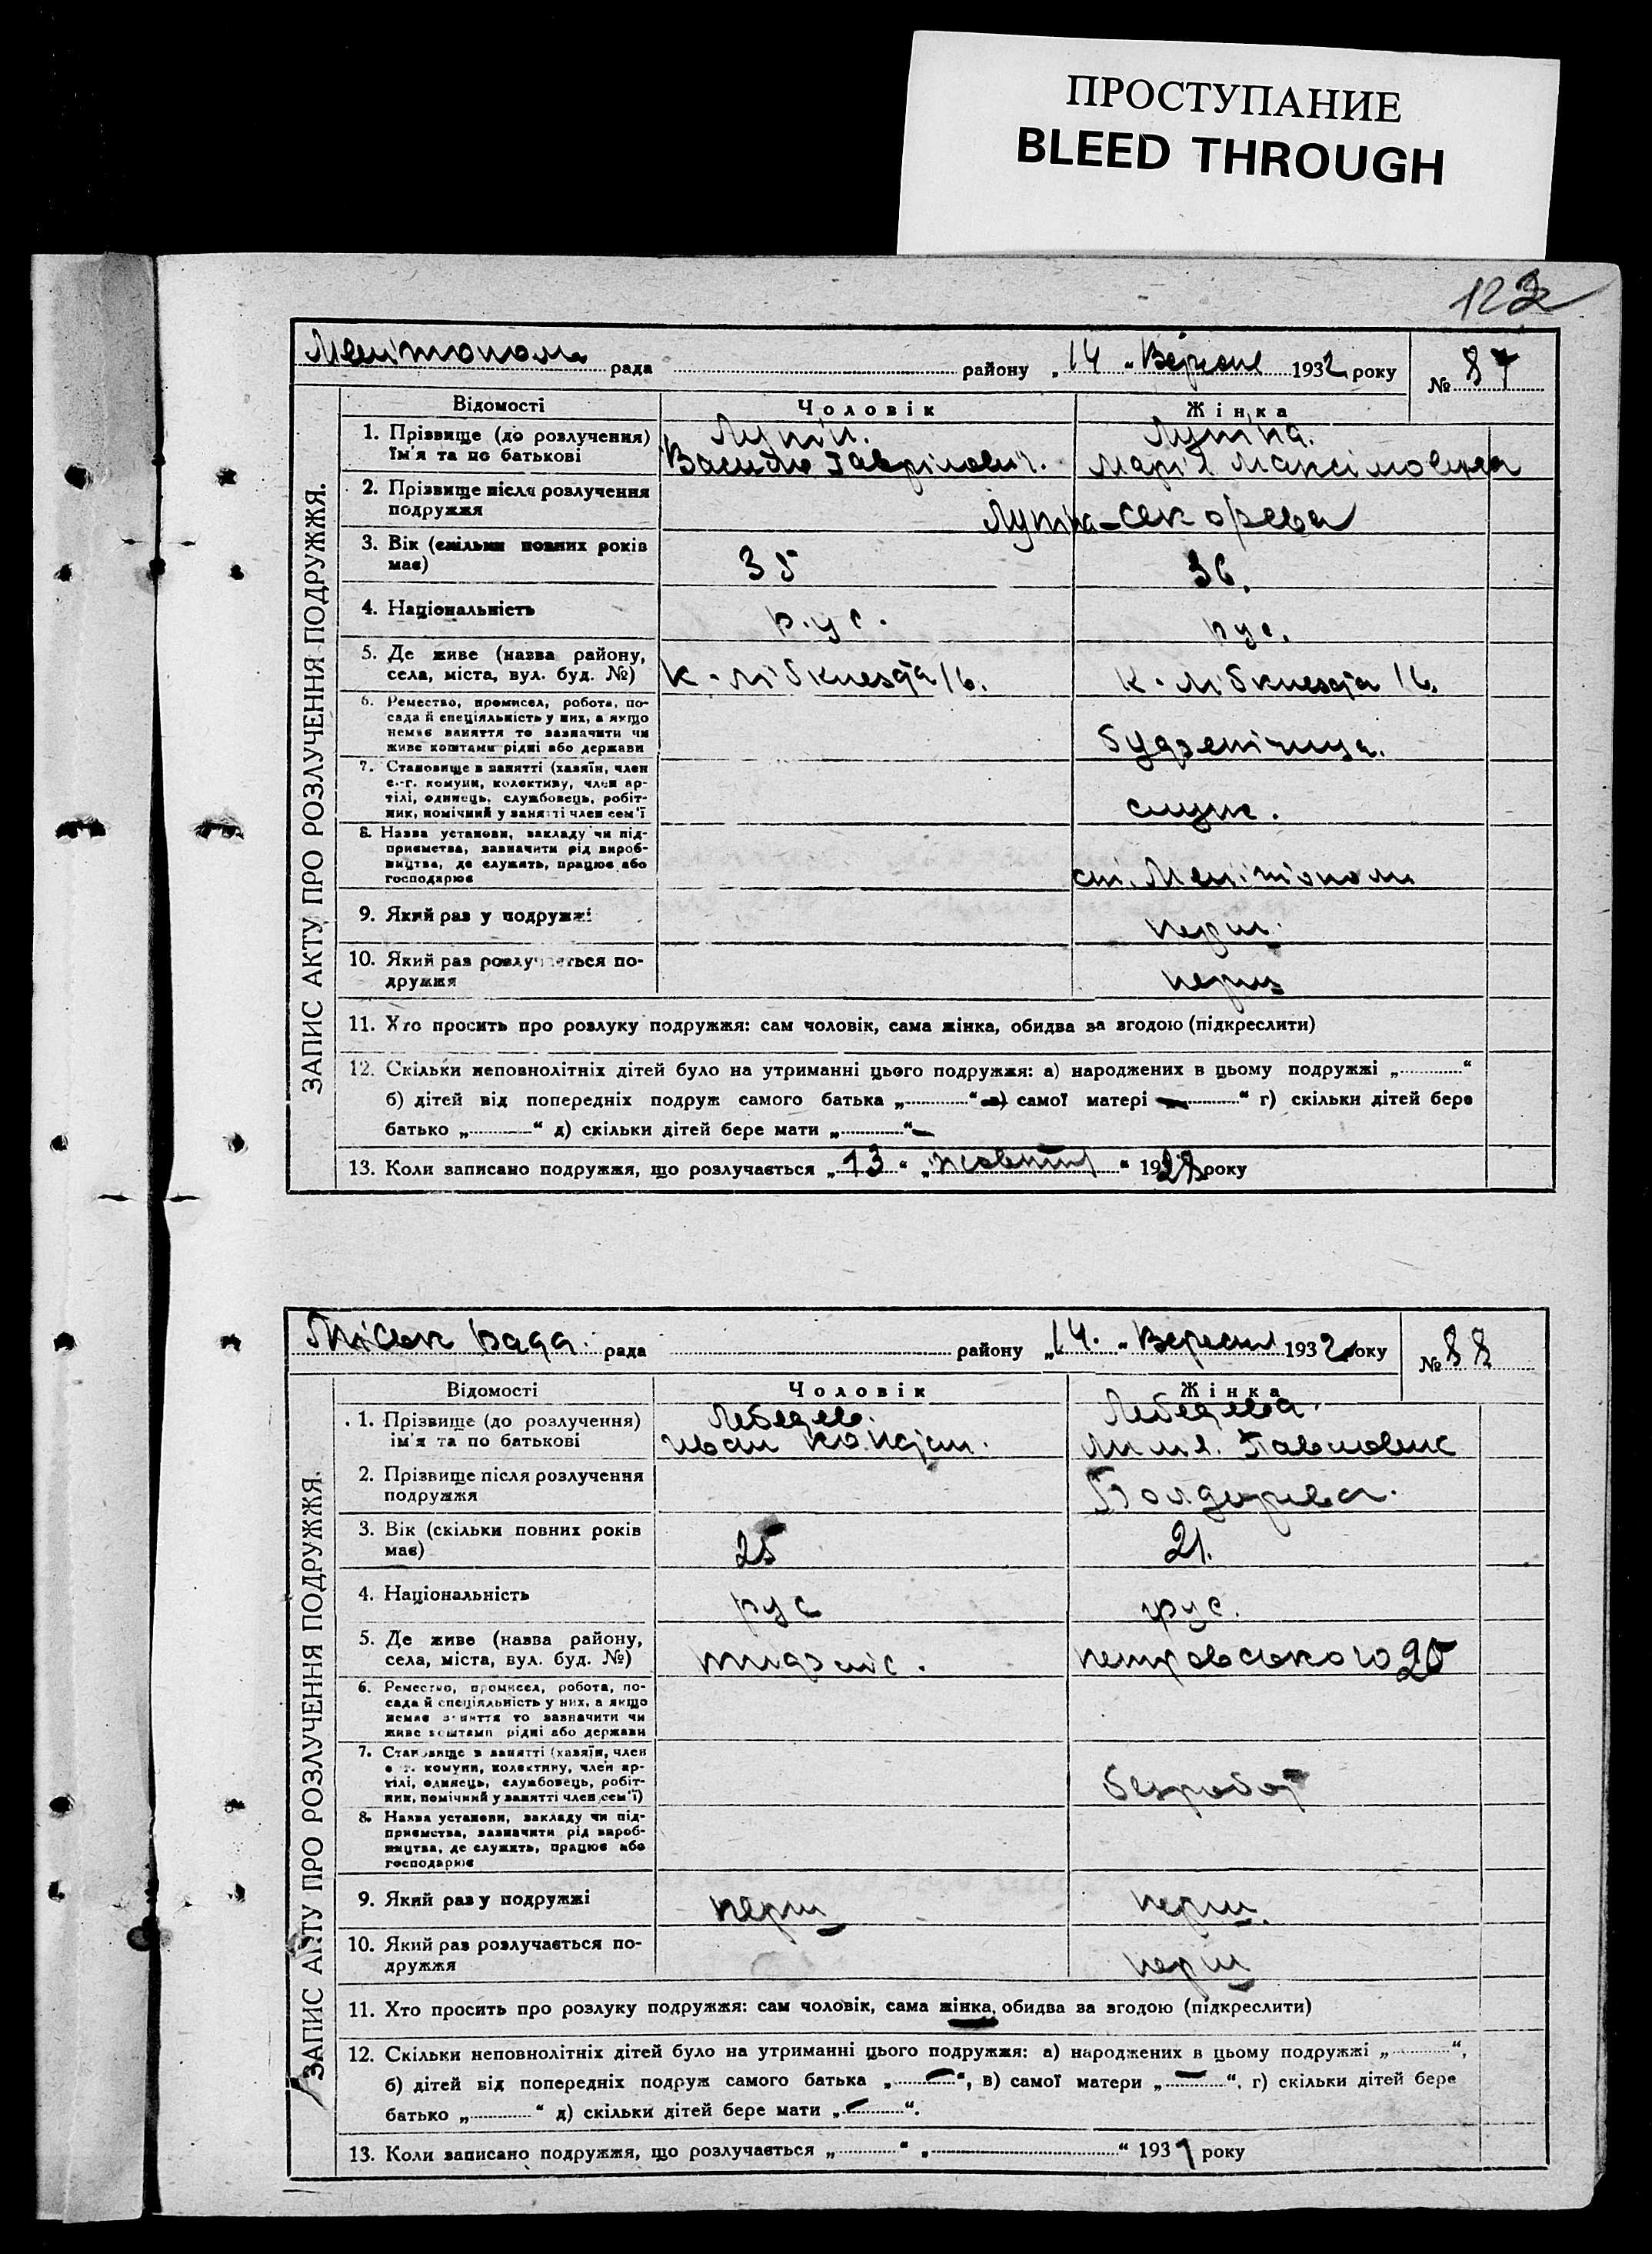 ПРОСТУПАНИЕ
BLEED THROUGH
123
рада району „14 „ Вересня 1932 року № 87
ЗАПИС АКТУ ПРО РОЗЛУЧЕННЯ ПОДРУЖЖЯ.
Відомості Чоловік Жінка
1. Прізвище (до розлучення) ім'я та по батькові
Лутін. Лутіна.
Василь Гаврілович. Марія Максімовна
2. Прізвище після розлучення подружжя
Лутіна-
3. Вік (скільки повних років має)
35 36.
4. Національність
рус. рус.
5. Де живе (назва району, села, міста, вул. буд. №)
К. Лібкнехта 16. К. Лібкнехта 16.
6. Ремество, промисел, робота, посада й спеціяльність у них, а якщо немає заняття то зазначити чи живе коштами рідні або держави
7. Становище в занятті (хазяїн, член с.-г. комуни, колективу, член артілі, одинець, службовець, робітник, помічний у занятті член сем'ї
служ.
8. Назва установи, закладу чи підприємства, зазначити рід виробництва, де служить, працює або господарює
ст. Мелітополь
9. Який раз у подружжі
перш.
10. Який раз розлучається подружжя
перш
11. Хто просить про розлуку подружжя: сам чоловік, сама жінка, обидва за згодою (підкреслити)
12. Скільки неповнолітніх дітей було на утриманні цього подружжя: а) народжених в цьому подружжі „ “
б) дітей від попередніх подруж самого батька „ “ в) самої матері “ г) скільки дітей бере
батько „ “ д) скільки дітей бере мати „ “
13. Коли записано подружжя, що розлучається „13“ „жовтня“ 1928 року
Міськ рада. рада району „14. „ Вересня 1932 року № 88
ЗАПИС АКТУ ПРО РОЗЛУЧЕННЯ ПОДРУЖЖЯ.
Відомості Чоловік Жінка
1. Прізвище (до розлучення) ім'я та по батькові
Лебедев. Лебедева.
Іван Кондрат.
2. Прізвище після розлучення подружжя
Болдирева.
3. Вік (скільки повних років має)
25 21.
4. Національність
рус рус.
5. Де живе (назва району, села, міста, вул. буд. №)
Петровського 25
6. Ремество, промисел, робота, посада й спеціяльність у них, а якщо немає заняття то зазначити чи живе коштами рідні або держави
7. Становище в занятті (хазяїн, член с.-г. комуни, колективу, член артілі, одинець, службовець, робітник, помічний у занятті член сем'ї)
безробот
8. Назва установи, закладу чи підприємства, зазначити рід виробництва, де служить, працює або господарює
9. Який раз у подружжі
перш перш.
10. Який раз розлучається подружжя
перш
11. Хто просить про розлуку подружжя: сам чоловік, сама жінка, обидва за згодою (підкреслити)
12. Скільки неповнолітніх дітей було на утриманні цього подружжя: а) народжених в цьому подружжі „ “,
б) дітей від попередніх подруж самого батька „—“, в) самої матери „—“, г) скільки дітей бере
батько „ “ д) скільки дітей бере мати „—“.
13. Коли записано подружжя, що розлучається „ “ „ “ 1931 року